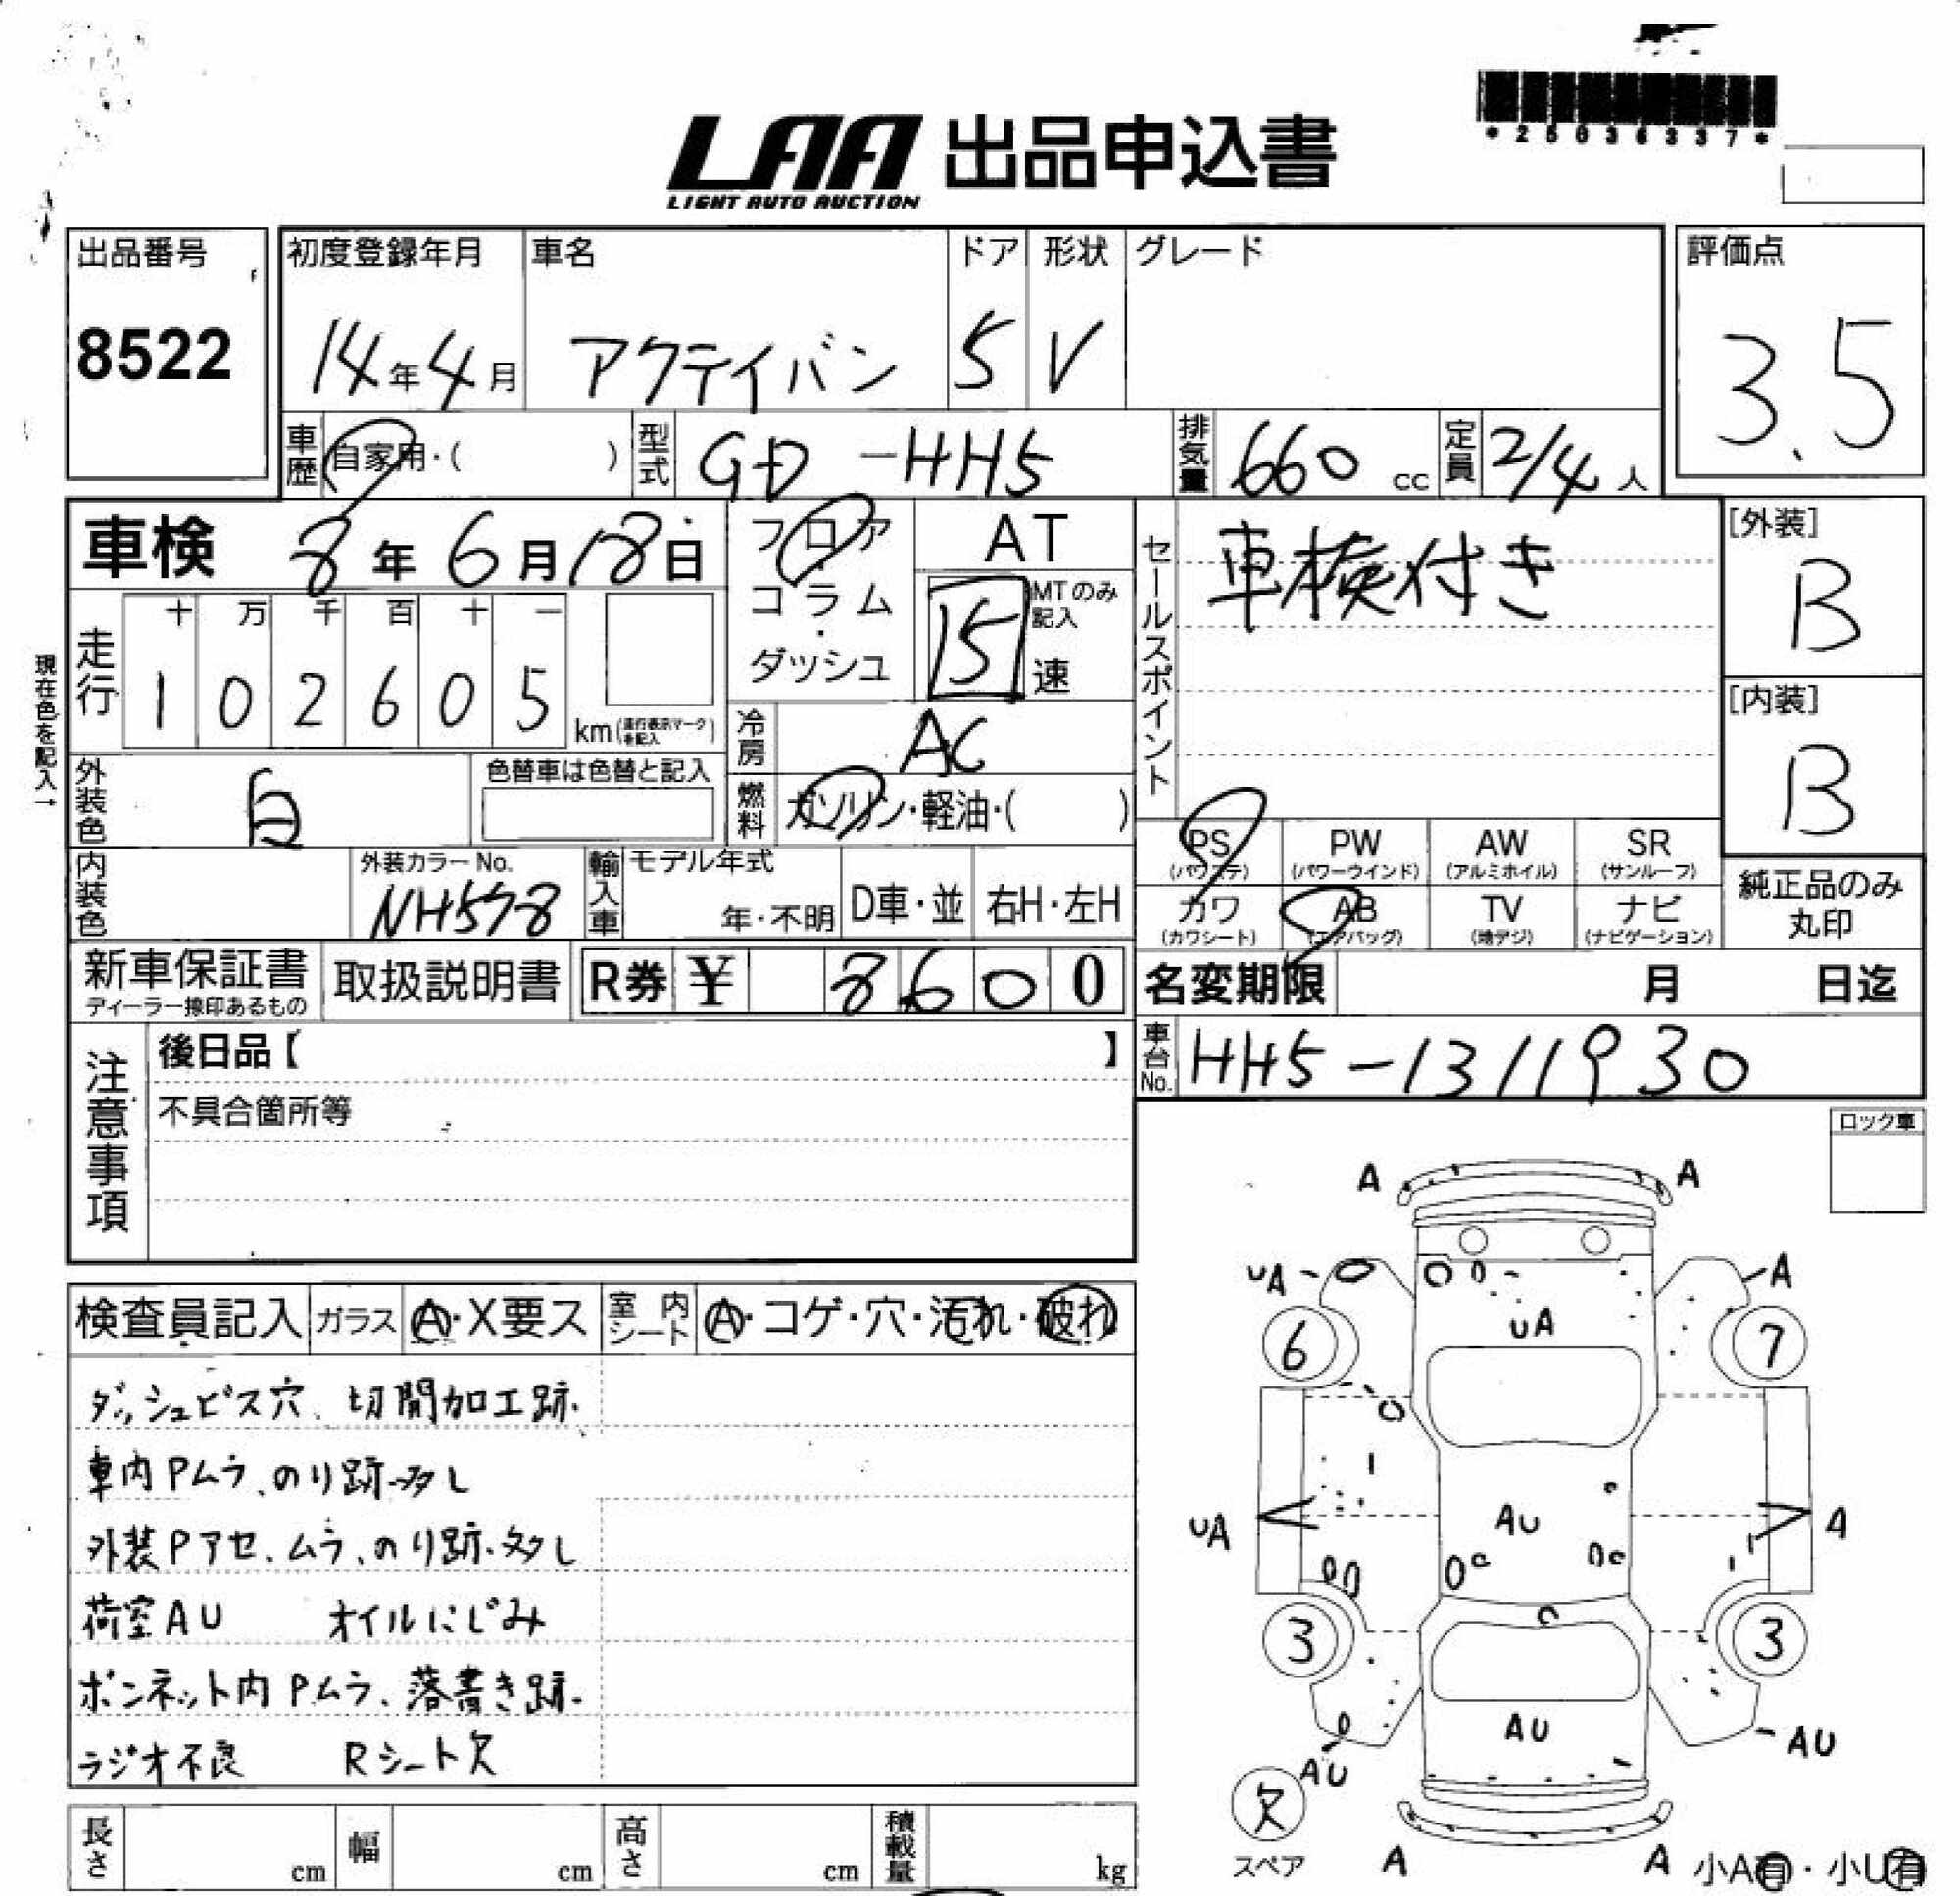 *25036337*
LAA 出品申込書
LIGHT AUTO AUCTION
出品番号 8522
初度登録年月 14年4月
車名 アクティバン
ドア 5
形状 V
グレード
評価点 3.5
車歴 自家用・( )
型式 GD-HH5
排気量 660 cc
定員 2/4人
車検 8年6月18日
フロア・コラム・ダッシュ
AT
MTのみ記入 速
セールスポイント 車検付き
[外装] B
現在色を記入→
走行 十 万 千 百 十 一
102605 km
[内装] B
冷房 AC
外装色 白
色替車は色替と記入
燃料 ガソリン・軽油・( )
PS (パワステ) PW (パワーウインド) AW (アルミホイル) SR (サンルーフ)
カワ (カワシート) AB (エアバッグ) TV (地デジ) ナビ (ナビゲーション)
純正品のみ丸印
内装色
外装カラーNo. NH578
輸入車 モデル年式 年・不明 D車・並 右H・左H
新車保証書
取扱説明書
R券 ¥ 8,600
名変期限 月 日迄
車台No. HH5-1311930
注意事項
後日品【 】
不具合箇所等
ロック車
検査員記入 ガラス A・X要ス 室内シート A・コゲ・穴・汚れ・破れ
ダッシュビス穴、切開加工跡.
車内Pムラ、のり跡多し
外装Pアセ、ムラ、のり跡、多し
荷室AU オイルにじみ
ボンネット内Pムラ、落書き跡.
ラジオ不良 Rシート欠
A A
UA A
UA
6 7
UA AU A
3 3
AU AU AU
欠
スペア
A A
小A有・小U有
長さ cm 幅 cm 高さ cm 積載量 kg